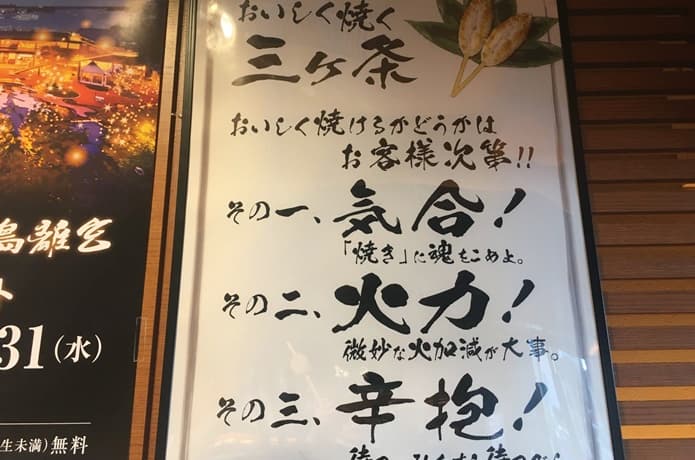 おいしく焼く
三ヶ条
おいしく焼けるかどうかは
お客様次第!!
その一、気合!
「焼き」に魂をこめよ。
その二、火力!
微妙な火加減が大事。
その三、辛抱!
島離宮
ト
31(水)
生未満)無料